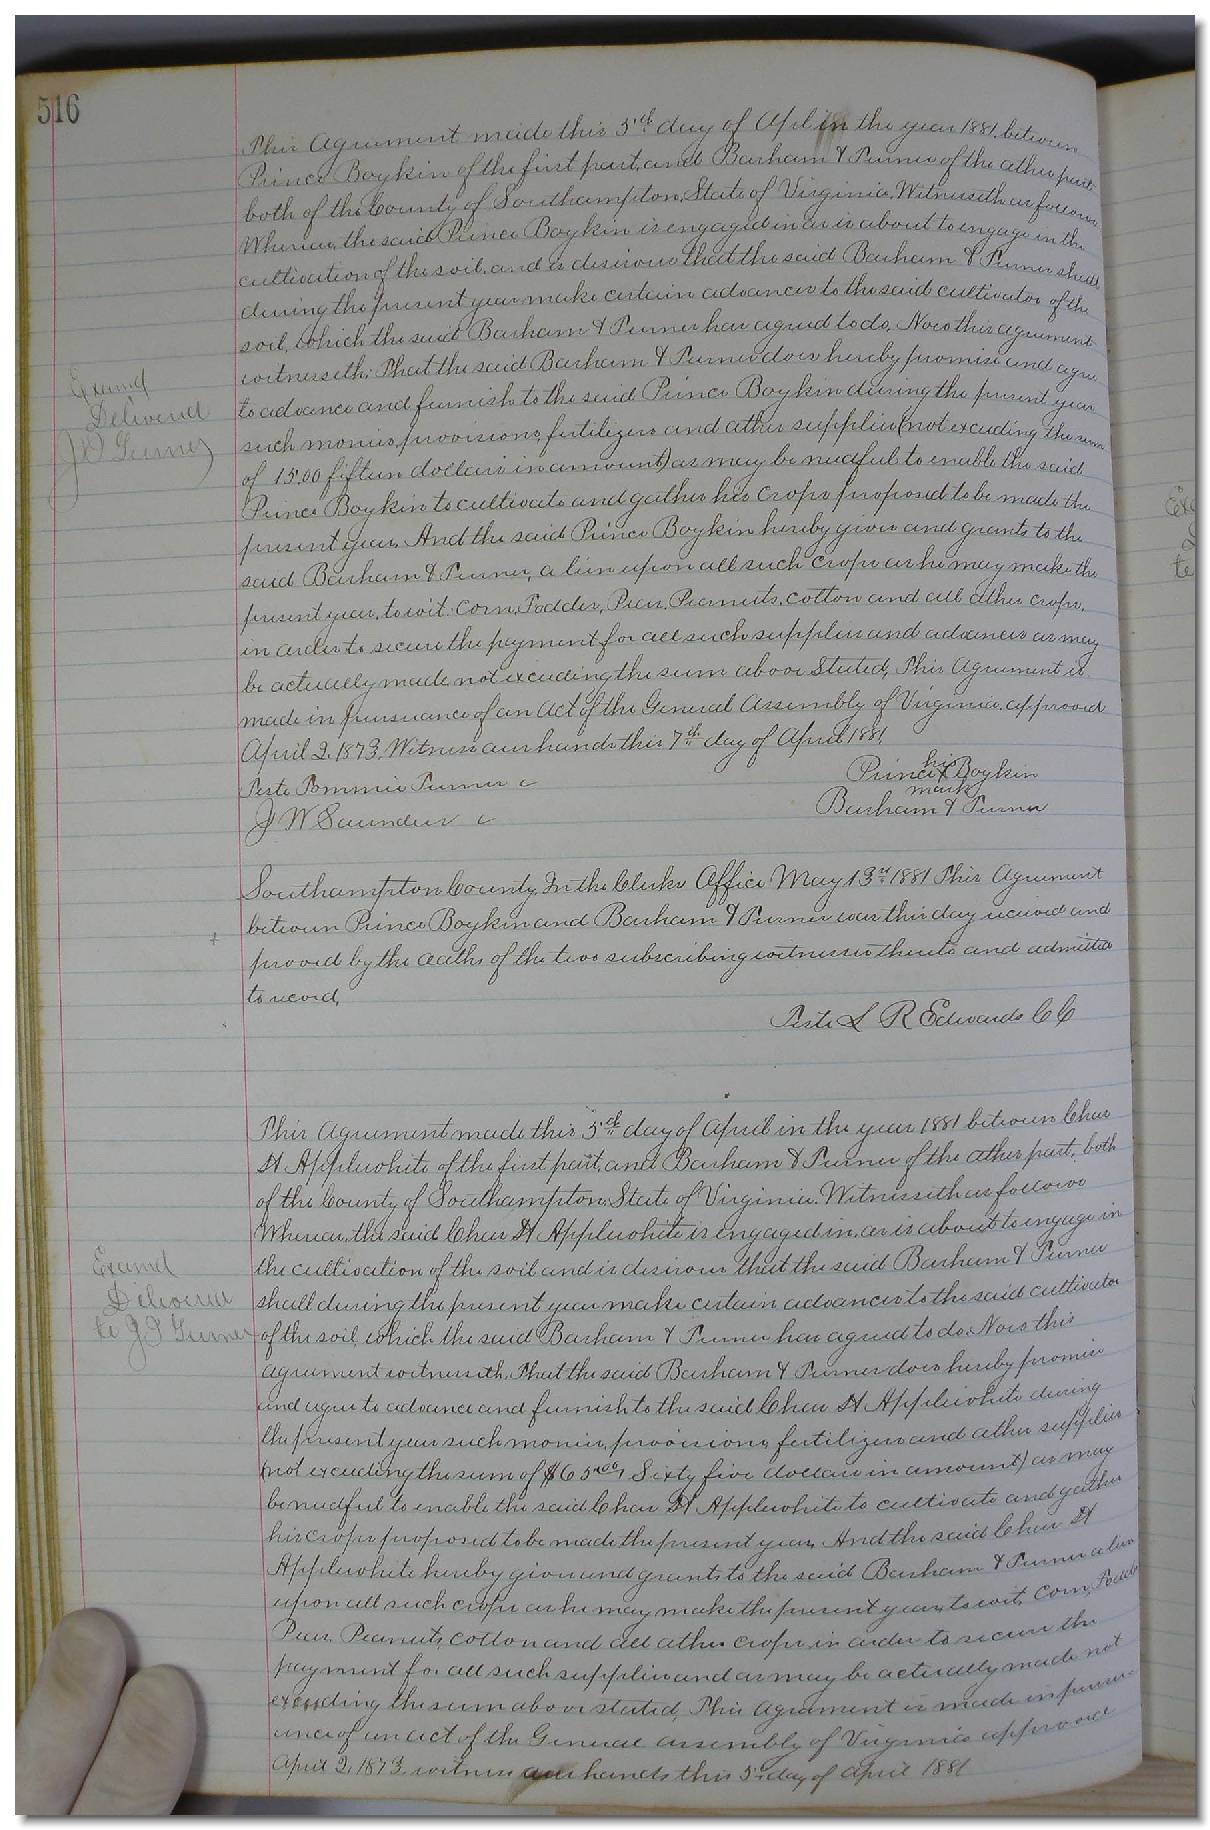 516
This Agreement made this 5th day of April in the year 1881, between
Prince Boykin of the first part, and Barham & Turner of the other part
both of the County of Southampton, State of Virginia. Witnesseth as follows
Whereas, the said Prince Boykin is engaged in or is about to engage in the
cultivation of the soil, and is desirous that the said Barham & Turner shall
during the present year make certain advances to the said cultivator of the
soil, which the said Barham & Turner has agreed to do, Now this agreement
witnesseth: That the said Barham & Turner does hereby promise and agree
to advance and furnish to the said Prince Boykin during the present year
such monies, provisions, fertilizers and other supplies (not exceeding the sum
of 15.00 fifteen dollars in amount) as may be needful to enable the said
Prince Boykin to cultivate and gather his crops proposed to be made the
present year. And the said Prince Boykin hereby gives and grants to the
said Barham & Turner, a lien upon all such crops as he may make the
present year, to wit: Corn, Fodder, Peas, Peanuts, cotton and all other crops,
in order to secure the payment for all such supplies and advances as may
be actually made, not exceeding the sum above stated, This Agreement is
made in pursuance of an Act of the General Assembly of Virginia, approved
April 2, 1873. Witness our hands this 7th day of April 1881,
Teste Tommie Turner c
J W Saunders c
his
Prince X Boykin
mark
Barham & Turner
Examd
Delivered
J D Turner
Southampton County, In the Clerks Office May 13th 1881 This Agreement
between Prince Boykin and Barham & Turner was this day received and
proved by the oaths of the two subscribing witnesses thereto and admitted
to record,
Teste L R Edwards C C
This Agreement made this 5th day of April in the year 1881 between Chas
H Applewhite of the first part, and Barham & Turner of the other part, both
of the County of Southampton, State of Virginia. Witnesseth as follows
Whereas, the said Chas H Applewhite is engaged in, or is about to engage in
the cultivation of the soil and is desirous that the said Barham & Turner
shall during the present year make certain advances to the said cultivator
of the soil, which the said Barham & Turner has agreed to do. Now this
agreement witnesseth, That the said Barham & Turner does hereby promise
and agree to advance and furnish to the said Chas H Applewhite during
the present year such monies, provisions, fertilizers and other supplies
(not exceeding the sum of $65.00, Sixty five dollars in amount) as may
be needful to enable the said Chas H Applewhite to cultivate and gather
his crops proposed to be made the present year, And the said Chas H
Applewhite hereby gives and grants to the said Barham & Turner a lien
upon all such crops as he may make the present year, to wit, Corn, Fodder
Peas, Peanuts, cotton and all other crops in order to secure the
payment for all such supplies and as may be actually made not
exceeding the sum above stated, This Agreement is made in pursu-
ance of an act of the General assembly of Virginia approved
April 2, 1873, witness our hands this 5th day of April 1881
Examd
Delivered
to J D Turner